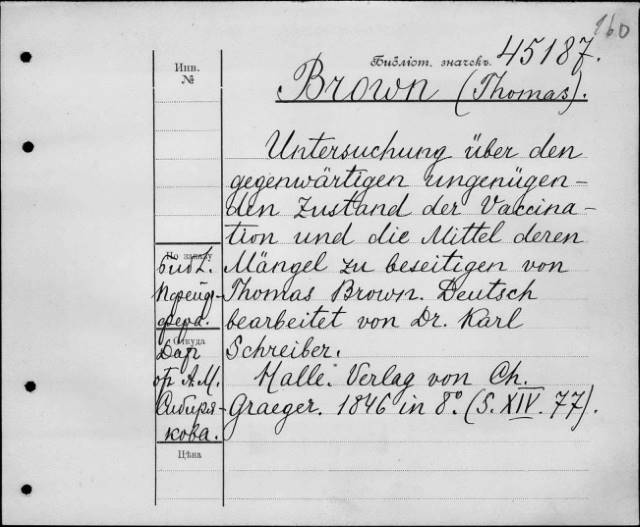 160
Библіот. значекъ 45187.
Инв.
№
Brown (Thomas).
Untersuchung über den
gegenwärtigen ungenügen-
den Zustand der Vaccina-
tion und die Mittel deren
Mängel zu beseitigen von
Thomas Brown. Deutsch
bearbeitet von Dr. Karl
Schreiber.
Halle. Verlag von Ch.
Graeger. 1846 in 8º. (S. XIV. 77).
По заказу
Библ.
Пфейф-
фера.
Откуда
Дар
от А.М.
Сибиря-
кова.
Цѣна